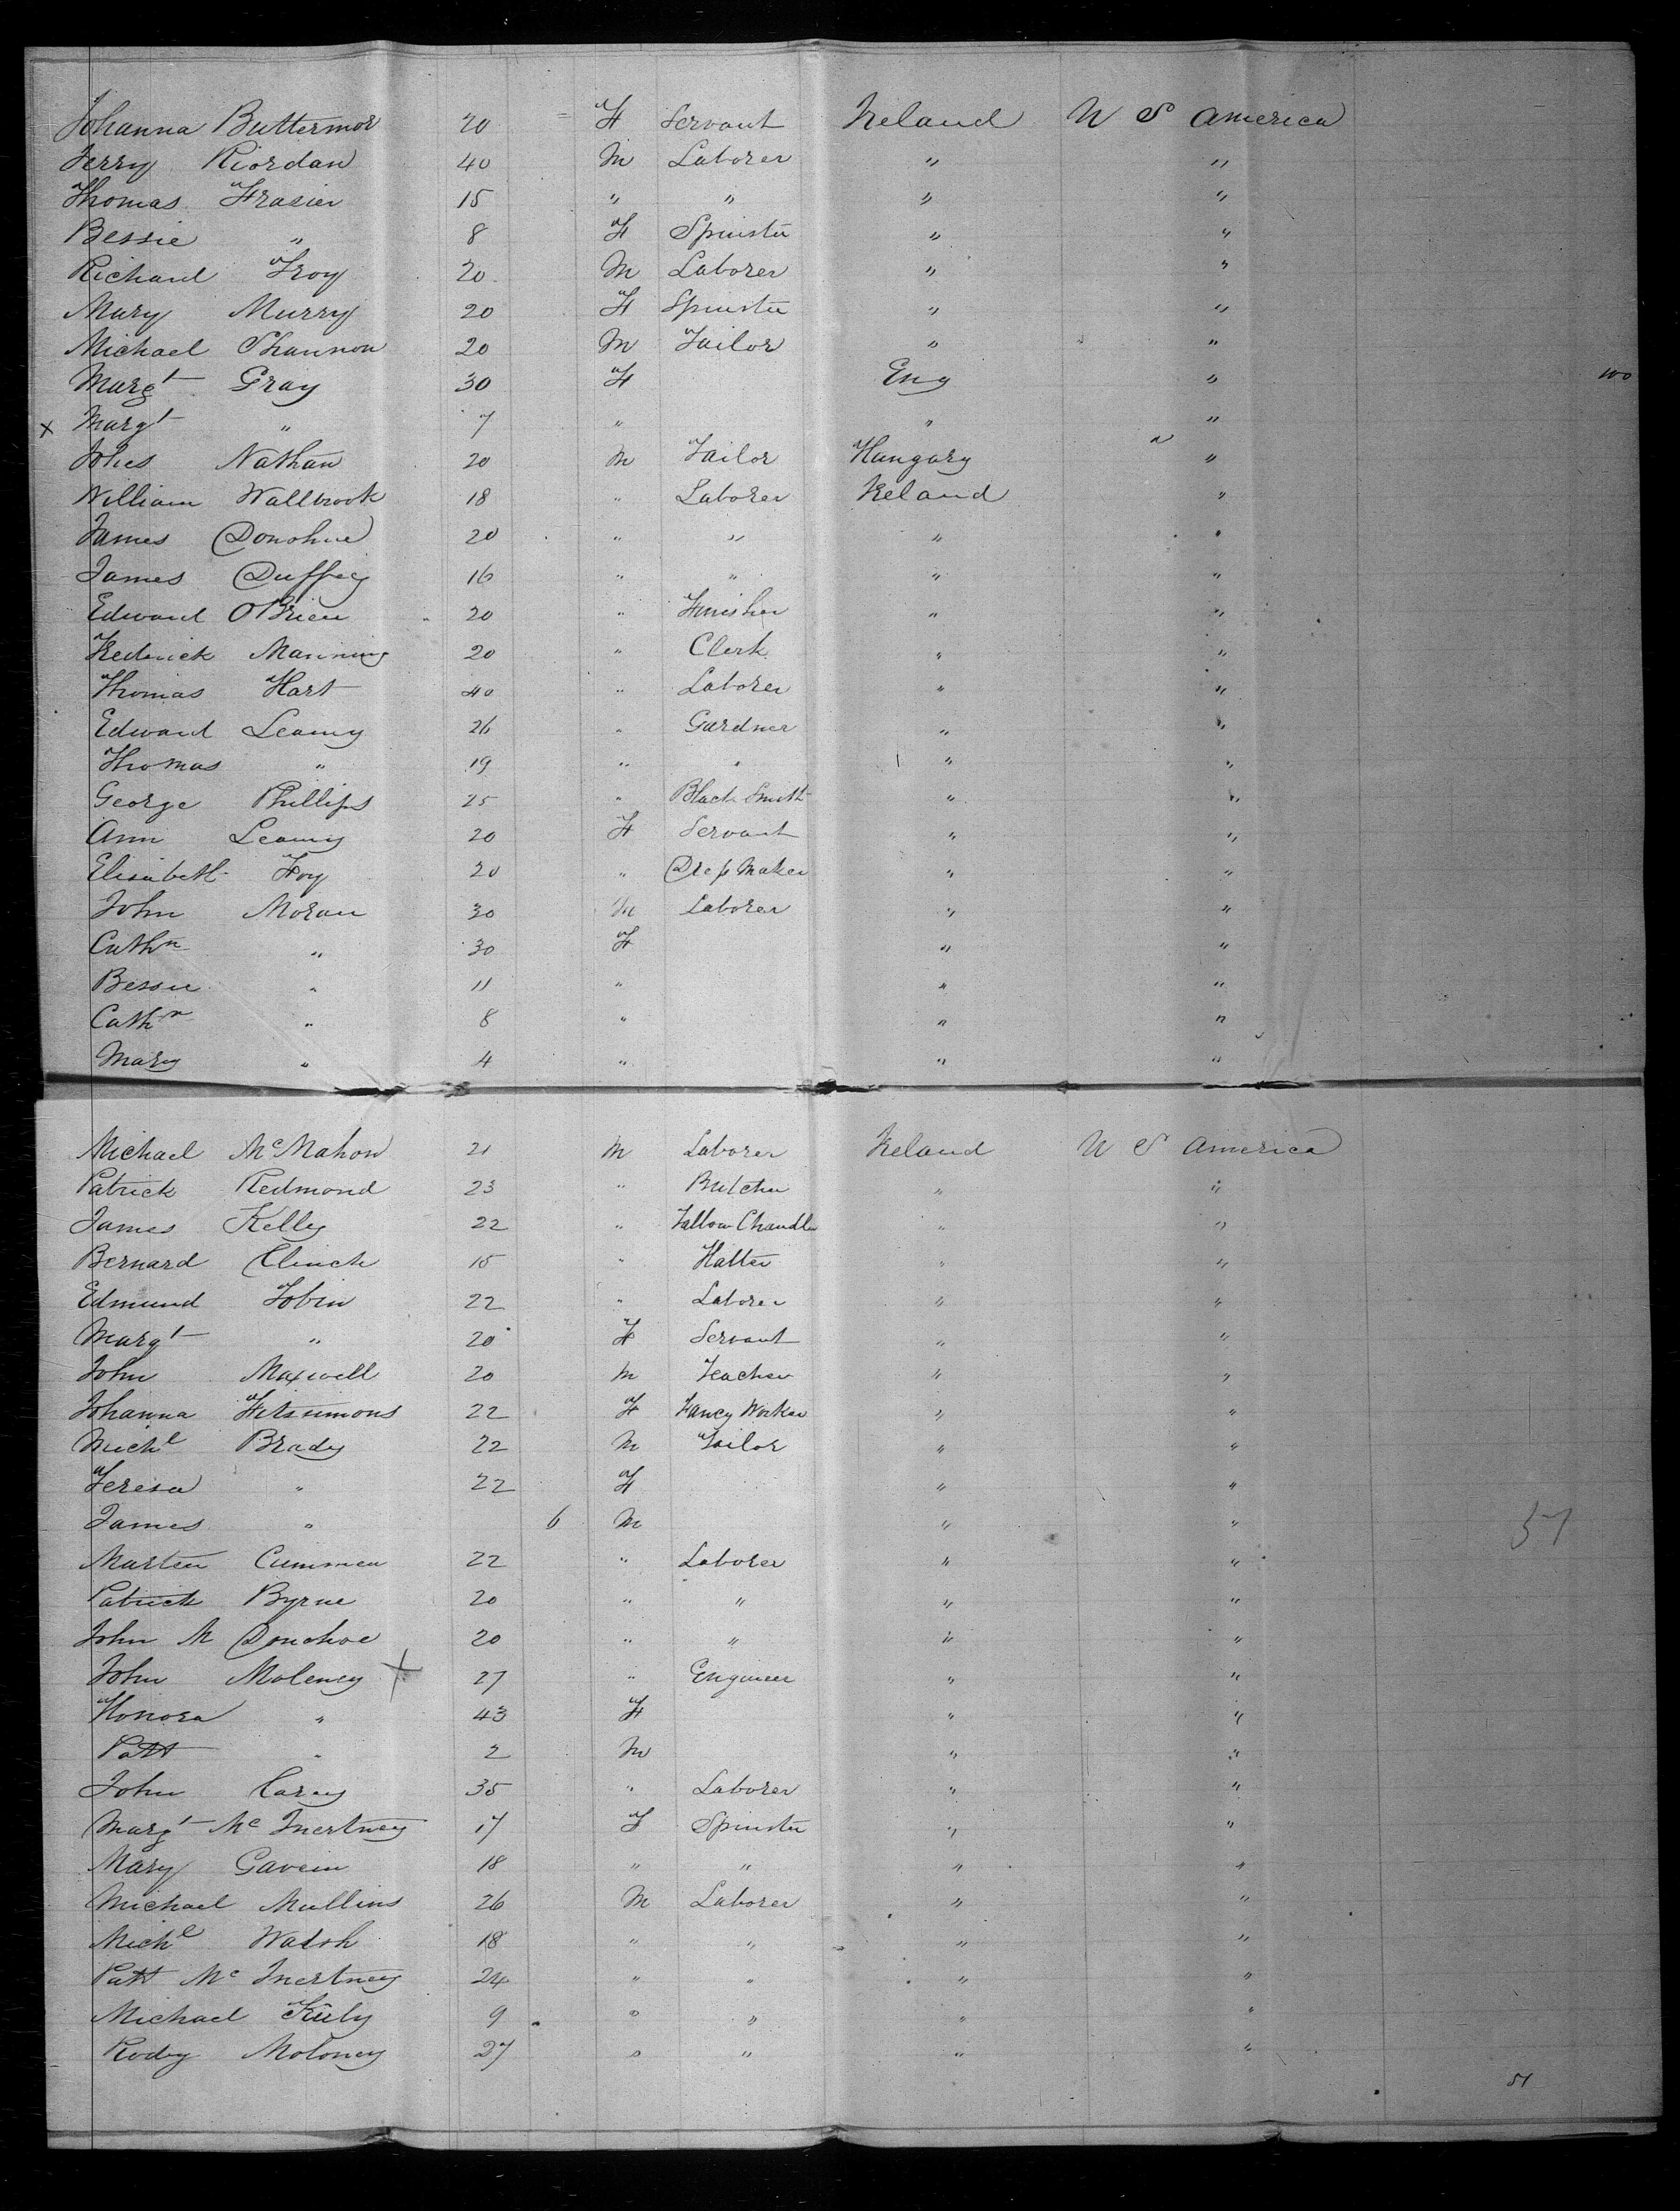 Johanna Buttermor 20 = F Servant Ireland U S America
Jerry Riordan 40 M Laborer " "
Thomas Frasier 15 " " " "
Bessie " 8 F Spinster " "
Richard Troy 20 M Laborer " "
Mary Murry 20 F Spinster " "
Michael Shannon 20 M Tailor " "
Margt Gray 30 F Eng " 100
x Margt " 7 " " "
Nathan 20 M Tailor Hungary "
William Wallbrook 18 " Laborer Ireland "
James Donohue 20 " " " "
James Duffey 16 " " " "
Edward OBrien 20 " Finisher " "
Fredrick Manning 20 " Clerk " "
Thomas Hart 40 " Laborer " "
Edward Leamy 26 " Gardner " "
Thomas " 19 " " " "
George Phillips 25 " Black Smith " "
Ann Leamy 20 F Servant " "
Elisabeth Foy 20 " Dress Maker " "
John Moran 30 M Laborer " "
Cathn " 30 F " "
Bessie " 11 " " "
Cathn " 8 " " "
Mary " 4 " " "
Michael McMahon 21 M Laborer Ireland U S America
Patrick Redmond 23 " Butcher " "
James Kelly 22 " Tallow Chandler " "
Bernard Clinch 15 " Hatter " "
Edmund Tobin 22 " Laborer " "
Margt " 20 F Servant " "
John Maxwell 20 M Teacher " "
Johanna Fitzsimons 22 F Fancy Worker " "
Michl Brady 22 M Tailor " "
Teresa " 22 F " "
James " 6 M " " 51
Marten Cummen 22 " Laborer " "
Patrick Byrne 20 " " " "
John M Donohoe 20 " " " "
John Moleney x 27 " Engineer " "
Honora " 43 F " "
Patt " 2 M " "
John Carey 35 " Laborer " "
Margt Mc Inertney 17 F Spinster " "
Mary Gavein 18 " " " "
Michael Mullins 26 M Laborer " "
Michl Walsh 18 " " " "
Patt Mc Inertney 24 " " " "
Michael 9 " " " "
Rody Moloney 27 " " " "
51